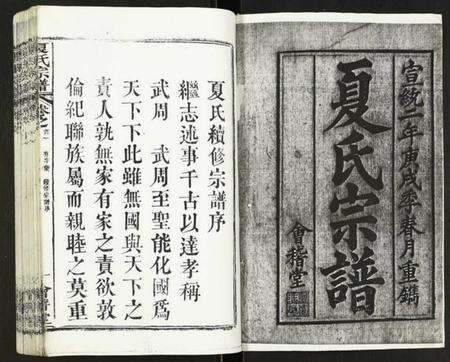 宣統二年庚戌年春月重鐫
夏氏宗譜
會稽堂
夏氏續修宗譜序
繼志述事千古以達孝稱
武周　武周至聖能化國爲
天下下此雖無國與天下之
責人孰無家有家之責欲敦
倫紀聯族屬而親睦之莫重
夏氏宗譜
會稽堂